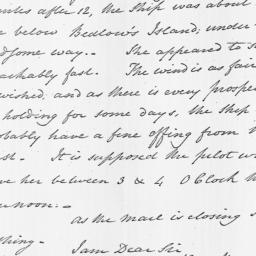 after 12, the Ship was about
below Bedlow's Island, under
some way. - She appeared to
fast. The wind is as fair
wished, and as there is every prospec
holding for some days, the ship
have a fine offing from
It is supposed the pilot w
her between 3 & 4 O Clock
noon. -
as the mail is closing
thing -
I am Dear Sir